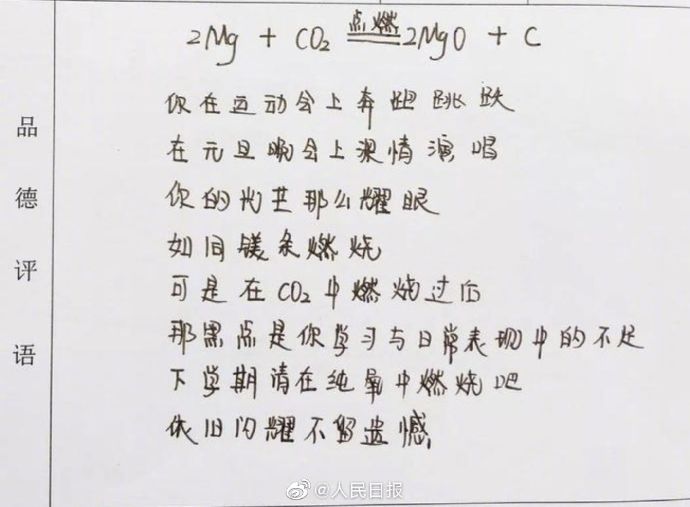 2Mg + CO₂ 点燃 2MgO + C
你在运动会上奔跑跳跃
在元旦晚会上深情演唱
你的光芒那么耀眼
如同镁条燃烧
可是在CO₂中燃烧过后
那黑点是你学习与日常表现中的不足
下学期请在纯氧中燃烧吧
依旧闪耀不留遗憾.
品德评语
@人民日报